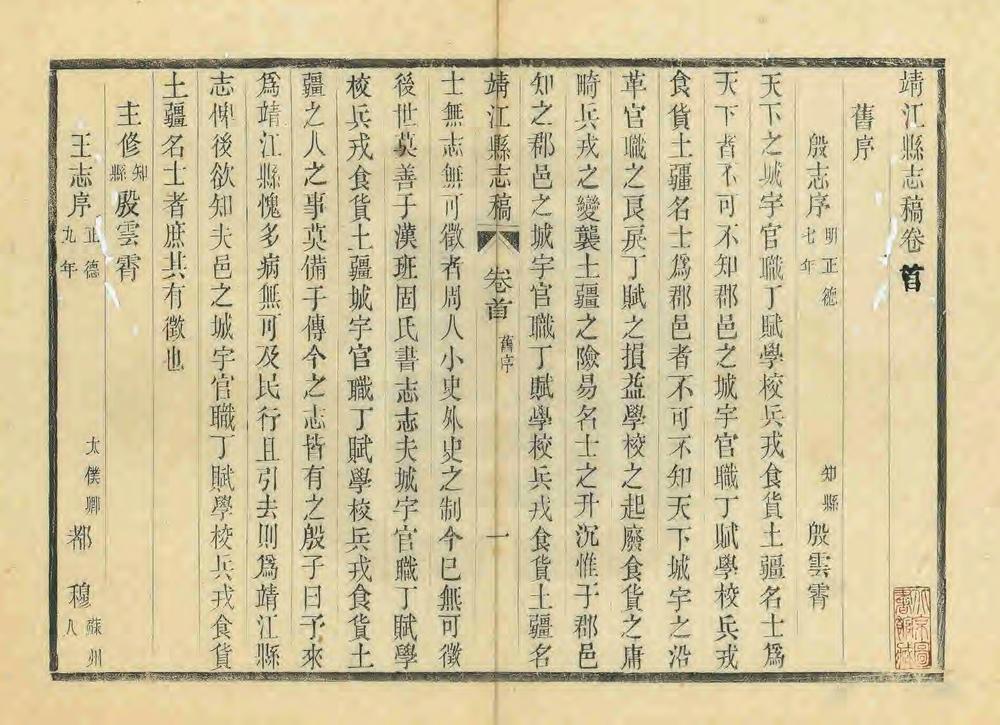 靖江縣志稿卷首
舊序
殷志序 明正德七年 知縣 殷雲霄
天下之城宇官職丁賦學校兵戎食貨土疆名士爲
天下者不可不知郡邑之城宇官職丁賦學校兵戎
食貨土疆名士爲郡邑者不可不知天下城宇之沿
革官職之良戾丁賦之損益學校之起廢食貨之庸
畸兵戎之變襲土疆之險易名士之升沉惟于郡邑
知之郡邑之城宇官職丁賦學校兵戎食貨土疆名
靖江縣志稿 卷首 舊序 一
士無志無可徵者周人小史外史之制今已無可徵
後世莫善于漢班固氏書志志夫城宇官職丁賦學
校兵戎食貨土疆城宇官職丁賦學校兵戎食貨土
疆之人之事莫備于傳今之志皆有之殷子曰予來
爲靖江縣愧多病無可及民行且引去則爲靖江縣
志俾後欲知夫邑之城宇官職丁賦學校兵戎食貨
土疆名士者庶其有徵也
主修 知縣 殷雲霄
王志序 正德九年 太僕卿 都穆 蘇州人